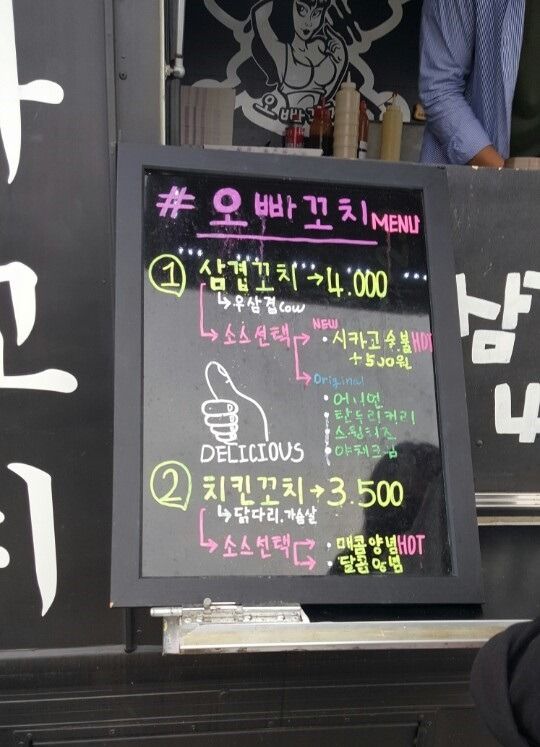 오빠꼬치
# 오빠꼬치 MENU
① 삼겹꼬치 → 4.000
↳ 우삼겹 cow
↳ 소스선택
NEW
· 시카고 숯불 HOT
+500원
Original
· 어니언
· 탄두리커리
· 스윗치즈
· 야채크림
DELICIOUS
② 치킨꼬치 → 3.500
↳ 닭다리.가슴살
↳ 소스선택
· 매콤양념 HOT
· 달콤양념
꼬
치
삼
4